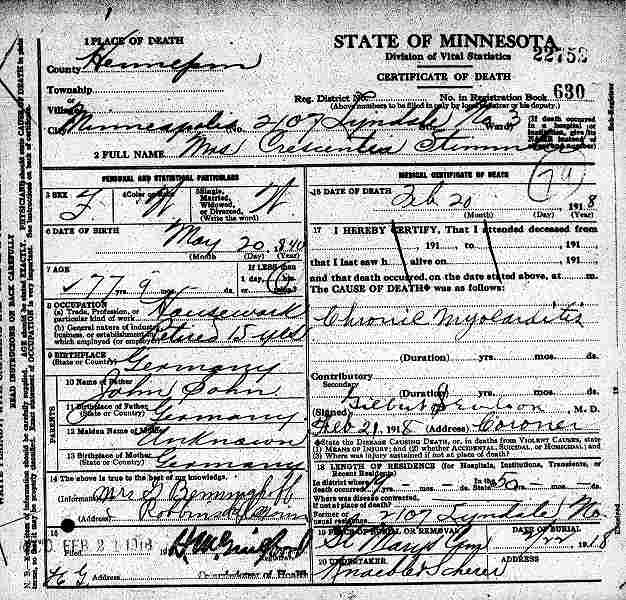 1 PLACE OF DEATH
STATE OF MINNESOTA
Division of Vital Statistics
CERTIFICATE OF DEATH
22752
County Hennepin
Township
Reg. District No. No. in Registration Book 630
(Above numbers to be filled in only by local registrar or his deputy.)
Village
City Minneapolis No. 2107 Lyndale No. Ward 3
(If death occurred in a hospital or institution, give its NAME instead of street and number)
2 FULL NAME Mrs Crescentia
PERSONAL AND STATISTICAL PARTICULARS
3 SEX F 4 Color W 5 Single, Married, Widowed, or Divorced. (Write the word) W
6 DATE OF BIRTH May 20 1840
(Month) (Day) (Year)
7 AGE 77 yrs. 9 mos. If LESS than 1 day,
8 OCCUPATION
(a) Trade, Profession, or particular kind of work Housework
(b) General nature of industry, business, or establishment in which employed (or employer) Retired 15 yrs
9 BIRTHPLACE
(State or Country) Germany
PARENTS
10 Name of Father John
11 Birthplace of Father
(State or Country) Germany
12 Maiden Name of Mother Unknown
13 Birthplace of Mother
(State or Country) Germany
14 The above is true to the best of my knowledge.
(Informant) Mrs
(Address) Robbinsdale Minn
15
FEB 21 1918
Address
MEDICAL CERTIFICATE OF DEATH
16 DATE OF DEATH Feb 20 1918
(Month) (Day) (Year)
17 I HEREBY CERTIFY, That I attended deceased from
, 191 to , 191
that I last saw h alive on , 191
and that death occurred, on the date stated above, at m.
The CAUSE OF DEATH was as follows:
Chronic Myocarditis
(Duration) yrs. mos. ds.
Contributory
Secondary
(Duration) yrs. mos. ds.
(Signed) Gilbert M. D.
Feb 21, 1918 (Address) Coroner
State the DISEASE CAUSING DEATH, or, in deaths from VIOLENT CAUSES, state (1) MEANS OF INJURY; and (2) whether ACCIDENTAL, SUICIDAL, or HOMICIDAL; and (3) Where was injury sustained if not at place of death?
18 LENGTH OF RESIDENCE (for Hospitals, Institutions, Transients, or Recent Residents)
In district where death occurred yrs. mos. ds. State 50 yrs. mos. ds.
Where was disease contracted, if not at place of death?
Former or usual residence 2107 Lyndale No.
19 PLACE OF BURIAL OR REMOVAL St Marys Cem
DATE OF BURIAL 2/22 1918
20 UNDERTAKER ADDRESS
Knaeble & Scherer